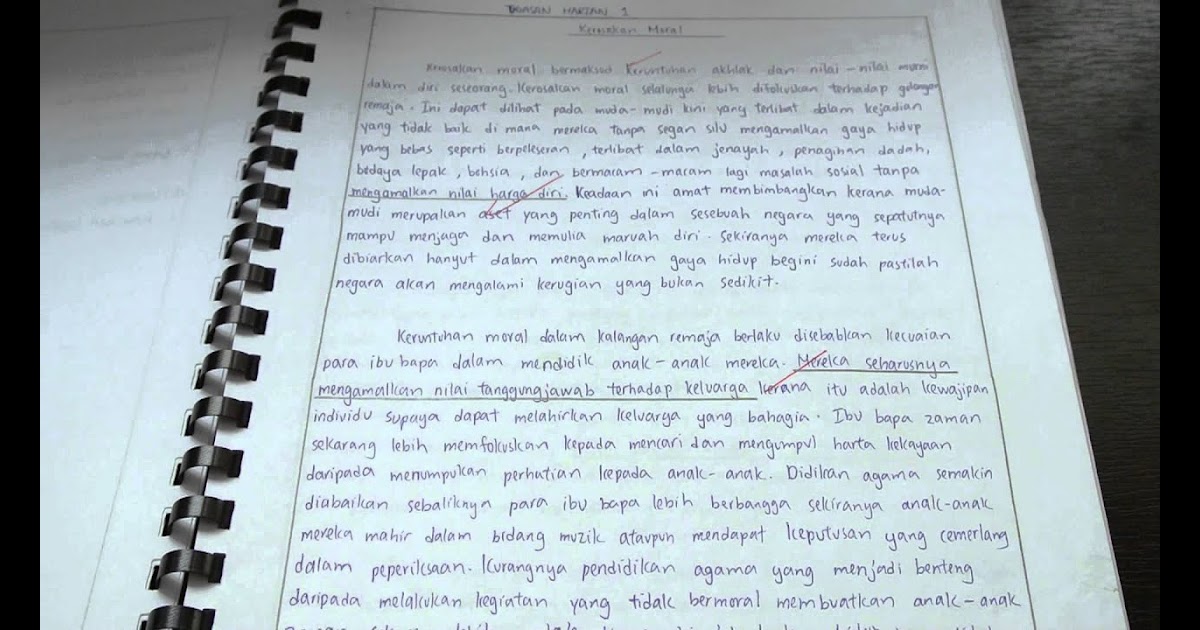 TUGASAN HARIAN 1
Kerosakan Moral
Kerosakan moral bermaksud keruntuhan akhlak dan nilai-nilai murni
dalam diri seseorang. Kerosakan moral selalunya lebih difokuskan terhadap golongan
remaja. Ini dapat dilihat pada muda-mudi kini yang terlibat dalam kejadian
yang tidak baik di mana mereka tanpa segan silu mengamalkan gaya hidup
yang bebas seperti berpeleseran, terlibat dalam jenayah, penagihan dadah,
bedaya lepak, bohsia, dan bermaram-maram lagi masalah sosial tanpa
mengamalkan nilai harga diri. Keadaan ini amat membimbangkan kerana muda-
mudi merupakan aset yang penting dalam sesebuah negara yang sepatutnya
mampu menjaga dan memulia maruah diri. Sekiranya mereka terus
dibiarkan hanyut dalam mengamalkan gaya hidup begini sudah pastilah
negara akan mengalami kerugian yang bukan sedikit.
Keruntuhan moral dalam kalangan remaja berlaku disebabkan kecuaian
para ibu bapa dalam mendidik anak-anak mereka. Mereka seharusnya
mengamalkan nilai tanggungjawab terhadap keluarga kerana itu adalah kewajipan
individu supaya dapat melahirkan keluarga yang bahagia. Ibu bapa zaman
sekarang lebih memfokuskan kepada mencari dan mengumpul harta kekayaan
daripada menumpukan perhatian kepada anak-anak. Didikan agama semakin
diabaikan sebaliknya para ibu bapa lebih berbangga sekiranya anak-anak
mereka mahir dalam bidang muzik ataupun mendapat keputusan yang cemerlang
dalam peperiksaan. Kurangnya pendidikan agama yang menjadi benteng
daripada melakukan kegiatan yang tidak bermoral membuatkan anak-anak